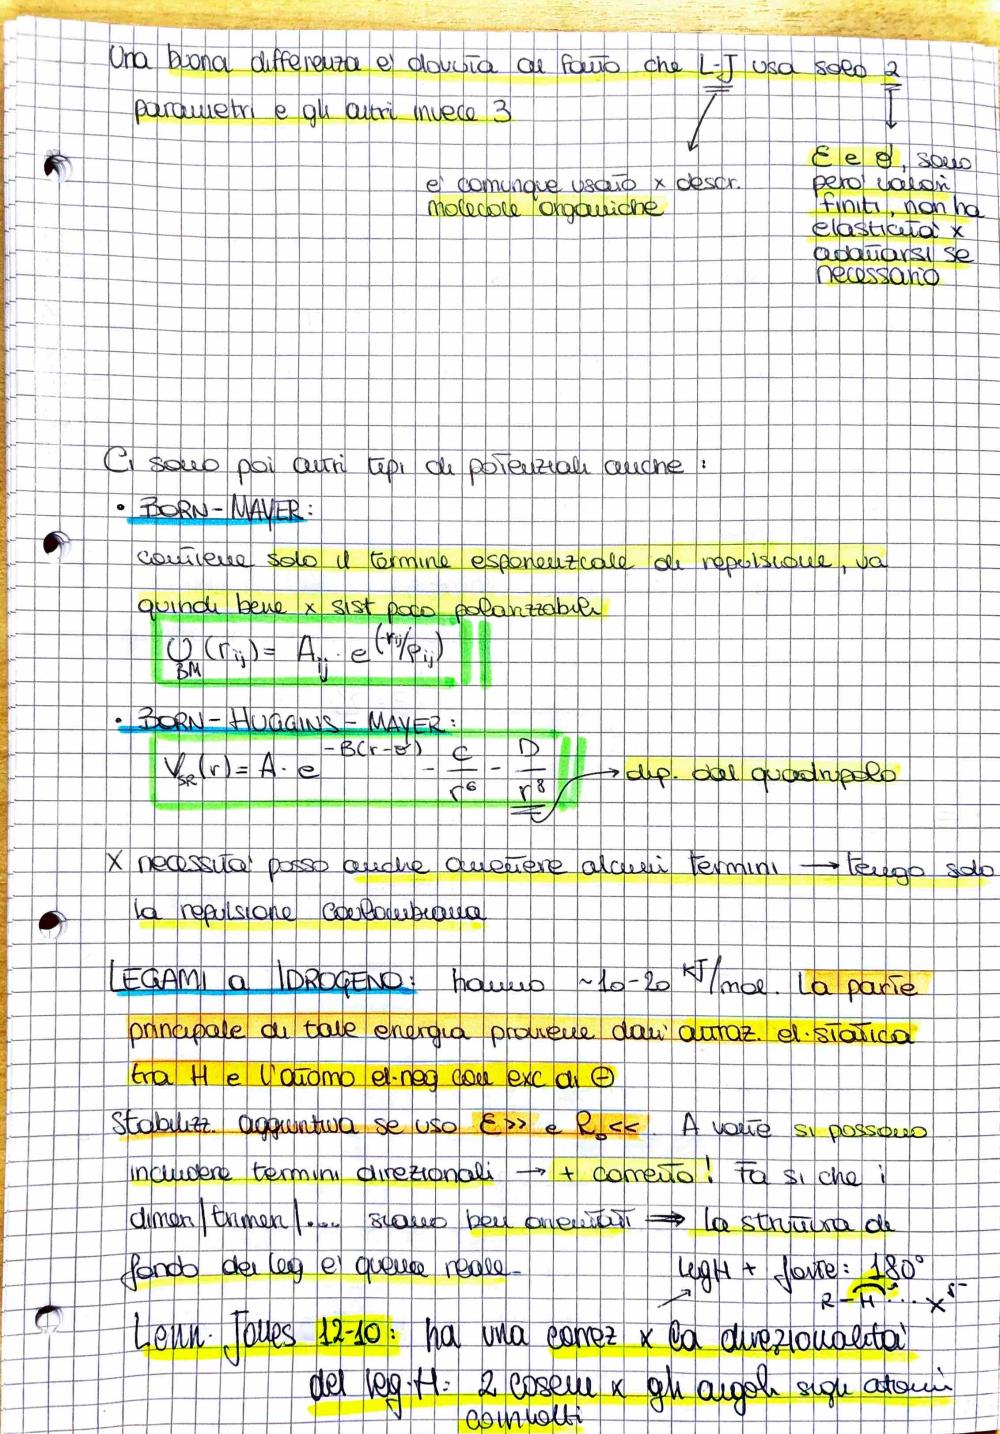 Una buona differenza e' dovuta al fatto che L-J usa solo 2
parametri e gli altri invece 3
e' comunque usato x descr.
molecole organiche
ε e σ, sono
pero' valori
finiti, non ha
elasticita' x
adattarsi se
necessario
Ci sono poi altri tipi di potenziali anche:
• BORN-MAYER:
contiene solo il termine esponenziale di repulsione, va
quindi bene x sist poco polarizzabili
U_BM(r_ij) = A_ij · e^(-r_ij/ρ_ij)
• BORN-HUGGINS-MAYER:
V_SR(r) = A · e^(-B(r-σ)) - C/r⁶ - D/r⁸ → dip. dal quadrupolo
X necessita' posso anche omettere alcuni termini → tengo solo
la repulsione coulombiana
LEGAMI a IDROGENO: hanno ~10-20 KJ/mol. La parte
principale di tale energia proviene dall'attraz. el.statica
tra H e l'atomo el.neg con exc di ⊖
Stabilizz. aggiuntiva se uso ε>> e R₀<<. A volte si possono
includere termini direzionali → + corretto! Fa si che i
dimeri/trimeri/.... siano ben orientati ⇒ la struttura di
fondo dei leg e' quella reale.
legH + forte: 180°
R-H ... X^δ-
Lenn. Jones 12-10: ha una correz x la direzionalita'
del leg.H: 2 coseni x gli angoli sugli atomi
coinvolti